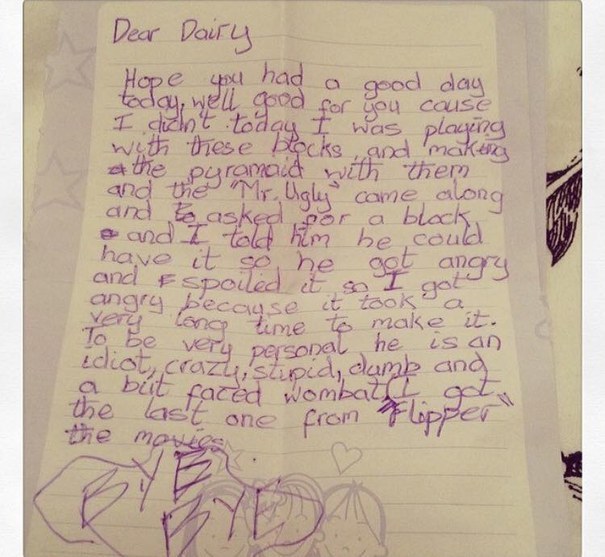 Dear Dairy
Hope you had a good day
today, well good for you cause
I didn't today I was playing
with these blocks and making
the pyramaid with them
and the "Mr. Ugly" came along
and asked for a block
and I told him he could
have it so he got angry
and spoiled it so I got
angry because it took a
very long time to make it.
To be very personal he is an
idiot, crazy, stupid, dumb and
a but faced wombat (I got
the last one from "Flipper"
the movies
BYE
BYE